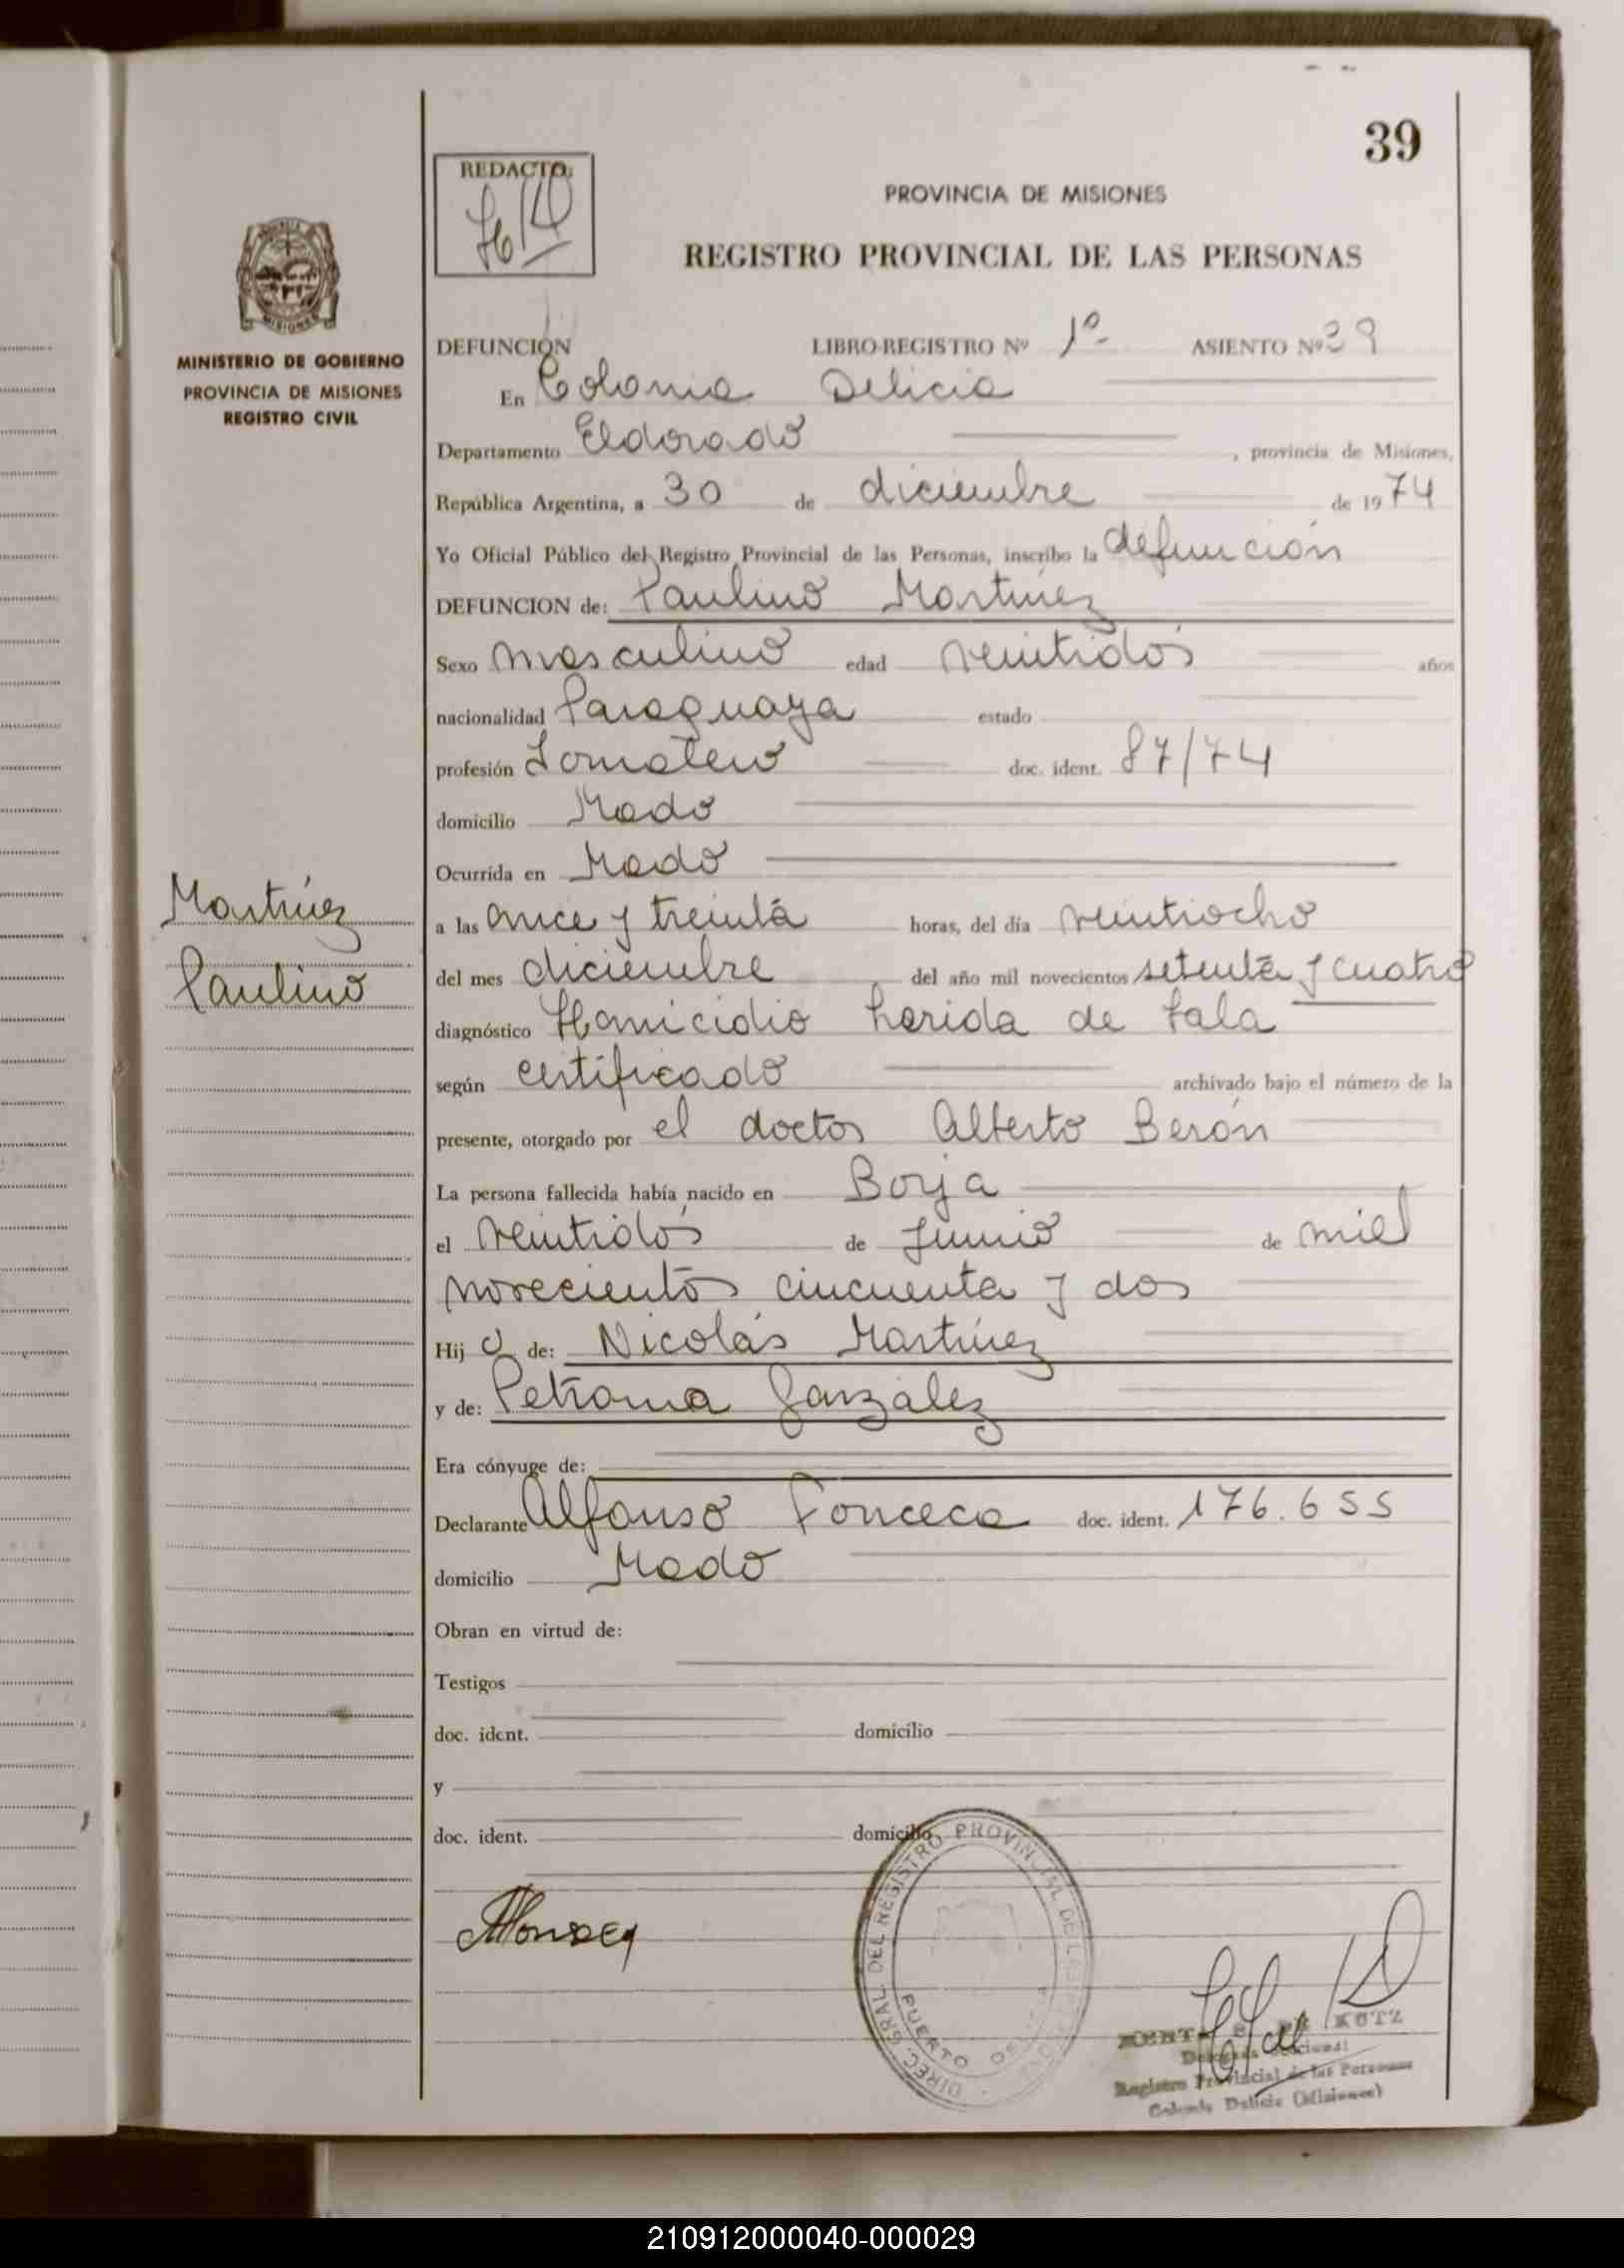 39
REDACTO:
PROVINCIA DE MISIONES
REGISTRO PROVINCIAL DE LAS PERSONAS
MINISTERIO DE GOBIERNO
PROVINCIA DE MISIONES
REGISTRO CIVIL
DEFUNCIÓN LIBRO-REGISTRO Nº 1º ASIENTO Nº 39
En Colonia Delicia
Departamento Eldorado, provincia de Misiones,
República Argentina, a 30 de diciembre de 1974
Yo Oficial Público del Registro Provincial de las Personas, inscribo la defunción
DEFUNCION de: Paulino Martínez
Sexo masculino edad veintidós años
nacionalidad Paraguaya estado
profesión Jornalero doc. ident. 87/74
domicilio Mado
Ocurrida en Mado
Martínez
Paulino
a las once y treinta horas, del día veintiocho
del mes diciembre del año mil novecientos setenta y cuatro
diagnóstico Homicidio herida de bala
según certificado archivado bajo el número de la
presente, otorgado por el doctor Alberto Berón
La persona fallecida había nacido en Borja
el veintidós de Junio de miel
novecientos cincuenta y dos
Hijo de: Nicolás Martínez
y de: Petrona González
Era cónyuge de:
Declarante Alfonso Fonceca doc. ident. 176.655
domicilio Mado
Obran en virtud de:
Testigos
doc. ident. domicilio
y
doc. ident. domicilio
DIREC. GRAL. DEL REGISTRO PROVINCIAL DE LAS
PUERTO
KUTZ
Registro Provincial de las Personas
Colonia Delicia (Misiones)
210912000040-000029